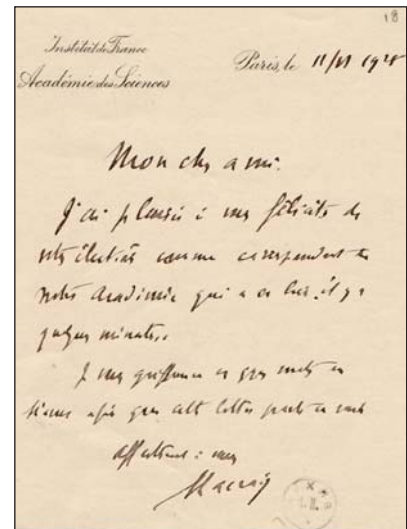 18
Institut de France
Académie des Sciences
Paris, le 11/VI 192
Mon cher ami.
J'ai plaisir à vous féliciter de
votre élection comme correspondant de
notre Académie qui a eu lieu il y a
quelques minutes.
Je vous griffonne ces quelques mots en
séance afin que cette lettre parte ce soir
affectueux à vous